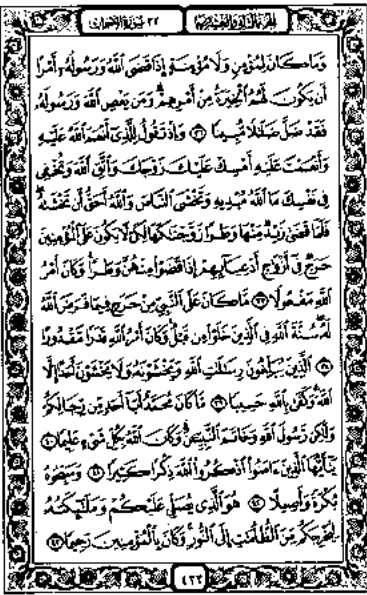 وَمَا كَانَ لِمُؤْمِنٍ وَلَا مُؤْمِنَةٍ إِذَا قَضَى ٱللَّهُ وَرَسُولُهُۥٓ أَمْرًا
أَن يَكُونَ لَهُمُ ٱلْخِيَرَةُ مِنْ أَمْرِهِمْ ۗ وَمَن يَعْصِ ٱللَّهَ وَرَسُولَهُۥ
فَقَدْ ضَلَّ ضَلَٰلًا مُّبِينًا ٣٦ وَإِذْ تَقُولُ لِلَّذِىٓ أَنْعَمَ ٱللَّهُ عَلَيْهِ
وَأَنْعَمْتَ عَلَيْهِ أَمْسِكْ عَلَيْكَ زَوْجَكَ وَٱتَّقِ ٱللَّهَ وَتُخْفِى
فِى نَفْسِكَ مَا ٱللَّهُ مُبْدِيهِ وَتَخْشَى ٱلنَّاسَ وَٱللَّهُ أَحَقُّ أَن تَخْشَىٰهُ ۖ
فَلَمَّا قَضَىٰ زَيْدٌ مِّنْهَا وَطَرًا زَوَّجْنَٰكَهَا لِكَىْ لَا يَكُونَ عَلَى ٱلْمُؤْمِنِينَ
حَرَجٌ فِىٓ أَزْوَٰجِ أَدْعِيَآئِهِمْ إِذَا قَضَوْا۟ مِنْهُنَّ وَطَرًا ۚ وَكَانَ أَمْرُ
ٱللَّهِ مَفْعُولًا ٣٧ مَّا كَانَ عَلَى ٱلنَّبِىِّ مِنْ حَرَجٍ فِيمَا فَرَضَ ٱللَّهُ
لَهُۥ ۖ سُنَّةَ ٱللَّهِ فِى ٱلَّذِينَ خَلَوْا۟ مِن قَبْلُ ۚ وَكَانَ أَمْرُ ٱللَّهِ قَدَرًا مَّقْدُورًا
٣٨ ٱلَّذِينَ يُبَلِّغُونَ رِسَٰلَٰتِ ٱللَّهِ وَيَخْشَوْنَهُۥ وَلَا يَخْشَوْنَ أَحَدًا إِلَّا
ٱللَّهَ ۗ وَكَفَىٰ بِٱللَّهِ حَسِيبًا ٣٩ مَّا كَانَ مُحَمَّدٌ أَبَآ أَحَدٍ مِّن رِّجَالِكُمْ
وَلَٰكِن رَّسُولَ ٱللَّهِ وَخَاتَمَ ٱلنَّبِيِّۦنَ ۗ وَكَانَ ٱللَّهُ بِكُلِّ شَىْءٍ عَلِيمًا ٤٠
يَٰٓأَيُّهَا ٱلَّذِينَ ءَامَنُوا۟ ٱذْكُرُوا۟ ٱللَّهَ ذِكْرًا كَثِيرًا ٤١ وَسَبِّحُوهُ
بُكْرَةً وَأَصِيلًا ٤٢ هُوَ ٱلَّذِى يُصَلِّى عَلَيْكُمْ وَمَلَٰٓئِكَتُهُۥ
لِيُخْرِجَكُم مِّنَ ٱلظُّلُمَٰتِ إِلَى ٱلنُّورِ ۚ وَكَانَ بِٱلْمُؤْمِنِينَ رَحِيمًا ٤٣
٤٢٣